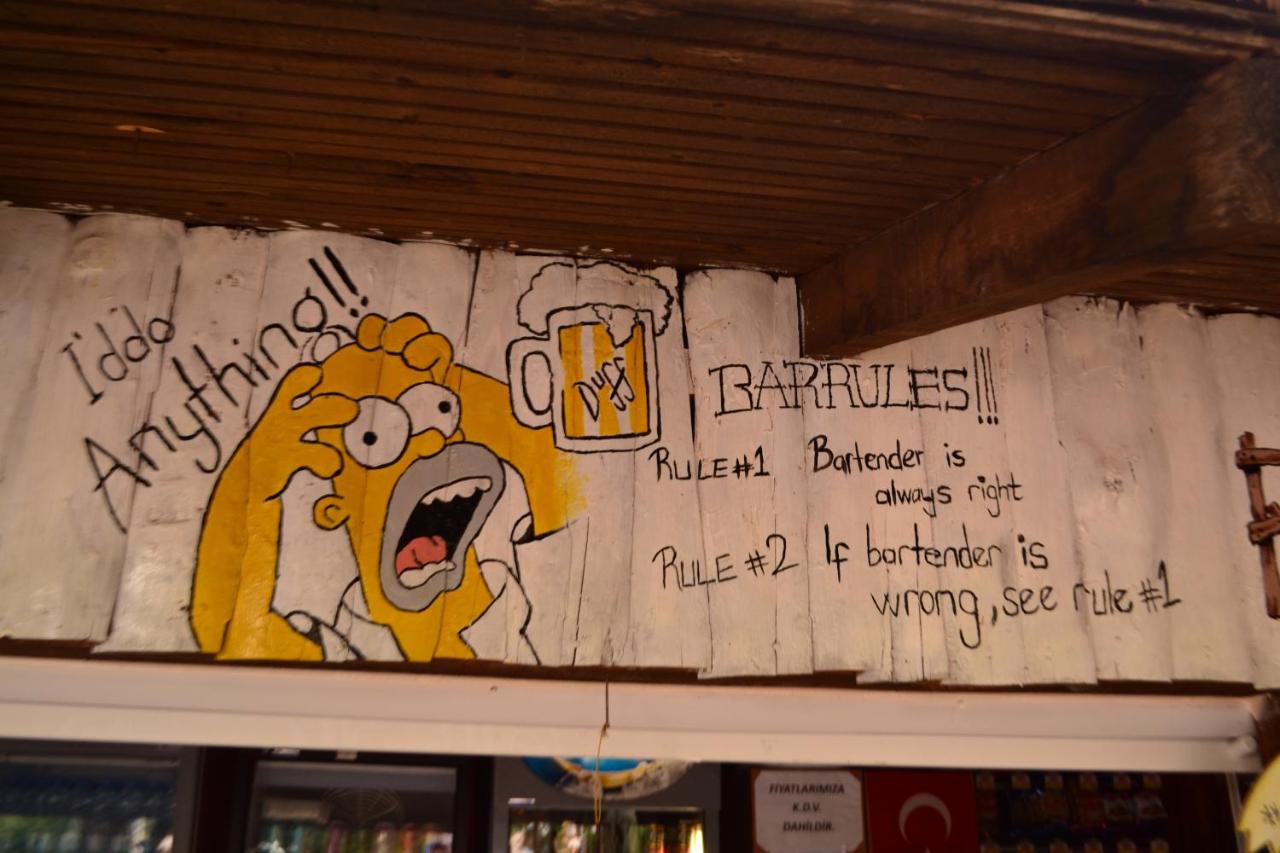 I'd do
Anything!!
Duff
BARRULES!!!
RULE #1 Bartender is
always right
RULE #2 If bartender is
wrong, see rule #1
FİYATLARIMIZA
K.D.V.
DAHİLDİR.